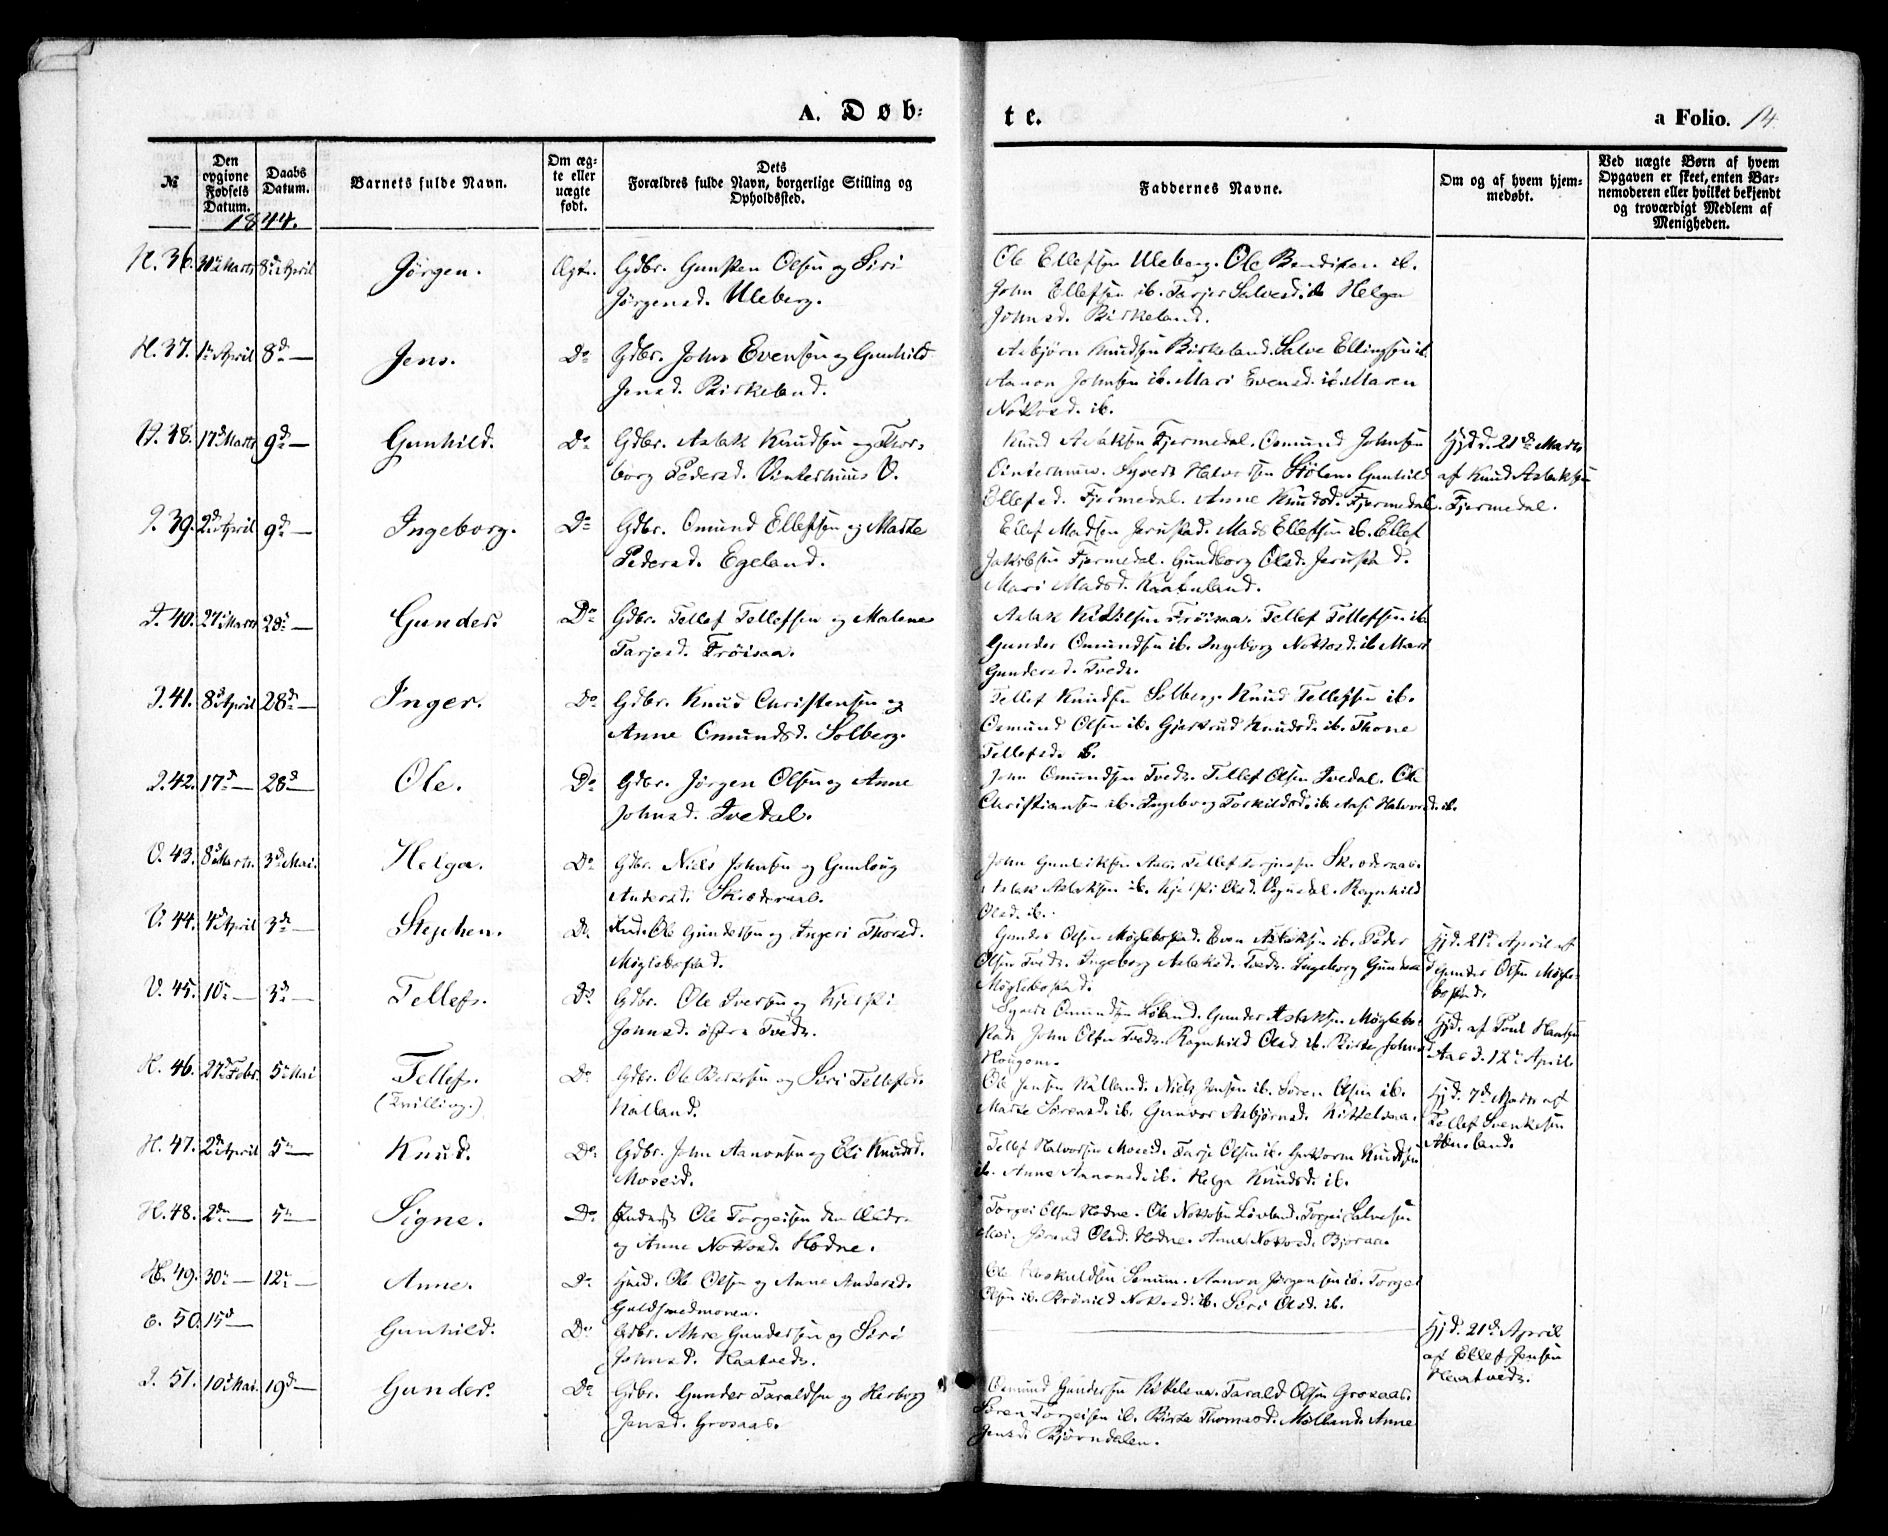 A. Døb-
te.
a Folio. 14.
№
Den opgivne Fødsels Datum.
Daabs Datum.
Barnets fulde Navn.
Om ægte eller uægte født.
Dets Forældres fulde Navn, borgerlige Stilling og Opholdssted.
Faddernes Navne.
Om og af hvem hjemmedøbt.
Ved uægte Børn af hvem Opgaven er skeet, enten Barnemoderen eller hvilket bekjendt og troværdigt Medlem af Menigheden.
1844.
H. 36. 31te Marts 8de April Jörgen. Ægte. Gdbr. Olsen og Siri
Jörgensd. Uleberg.
Ole Ellefsen Uleberg. Ole Bendixen ib.
John Ellefsen ib. Helga
Johnsd. Birkeland.
H. 37. 1te April 8de — Jens. Do Gdbr. John Evensen og Gunhild
Jensd. Birkeland.
Asbjörn Knudsen Birkeland. Salve Ellingsen ib.
Aanon Johnsen ib. Mari Evensd. ib. Maren
ib.
H. 38. 17de Marts 9de — Gunhild. Do Gdbr. Aslak Knudsen og Thor-
borg Pedersd. Vinterhuus V.
Knud Aslaksen Fjermedal. Osmund Johnsen
Vinterhuus. Syvert Halvorsen Stölen. Gunhild
Ellefsd. Fjermedal. Anne Knudsd. Fjermedal.
Hjd. 21de Marts
af Knud Aslaksen
Fjermedal.
I. 39. 2den April 9de — Ingeborg. Do Gdbr. Omund Ellefsen og Marte
Pedersd. Egeland.
Ellef Madsen Jerustad. Mads Ellefsen ib. Ellef
Jakobsen Fjermedal. Gundborg Olsd. Jerustad.
Mari Madsd.
I. 40. 27de Marts 28de — Gunder. Do Gdbr. Tellef Tellefsen og Malene
Tarjesd. Fröisaa.
Aslak Fröisaa. Tellef Tellefsen ib.
Gunder Omundsen ib. Ingeborg ib. Mari
Gundersd. Tveds.
I. 41. 8de April 28de — Inger. Do Gdbr. Knud Christensen og
Anne Omundsd. Solberg.
Tellef Knudsen Solberg. Knud Tellefsen ib.
Osmund Olsen ib. Gjertrud Knudsd. ib. Thone
Tellefsd. ib.
I. 42. 17de — 28de — Ole. Do Gdbr. Jörgen Olsen og Anne
Johnsd. Ivedal.
John Omundsen Tveds. Tellef Olsen Ivedal. Ole
Christiansen ib. Ingeborg Torkildsd. ib. ib.
V. 43. 8de Marts. 3de Mai. Helga. Do Gdbr. Niels Johnsen og Gunloug
Andersd.
John Tellef
Aslak Aslaksen ib. Olsd. Ragnhild
Olsd. ib.
V. 44. 4de April 3de — Stephen. Do Ole Gundersen og Ingeri Thorsd.
Möglebostad.
Gunder Olsen Möglebostad. Even Aslaksen ib. Peder
Olsen Tveds. Ingeborg Aslaksd. Tveds. Ingeborg
Möglebostad.
Hjd. 21de April af
Gunder Olsen Mögle-
bostad.
V. 45. 10de — 3de — Tellef. Do Gdbr. Ole Iversen og
Johnsd. östre Tveds.
Syvert Omundsen Gunder Aslaksen Möglebo-
stad. John Olsen Tveds. Ragnhild Olsd. ib. Birte Johnsd.
Hougom.
Hjd. af Poul Hansen
d. 12te April.
H. 46. 27de Febr. 5te Mai Tellef. Do Gdbr. Ole og Siri Tellefsd.
(Tvilling.)
Kalland.
Ole Jensen Kalland. Niels Jensen ib. Sören Olsen ib.
Marte Sörensd. ib. Gunvor Asbjörnsd.
Hjd. 7de Marts af
Tellef Svenksen
H. 47. 2den April 5te — Knud. Do Gdbr. John Aanonsen og Eli Knudsd.
Moseid.
Tellef Halvorsen Moseid. Tarje Olsen ib. Guttorm Knudsen
ib. Anne Aanonsd. ib. Helga Knudsd. ib.
H. 48. 2den — 5te — Signe. Do Ole Torgeisen den
og Anne Hodne.
Torgei Olsen Hodne. Ole Lövland. Torgei Salvesen
Olsd. Hodne. Anne
H. 49. 30te — 12te — Anne. Do Ole Olsen og Anne Andersd.
Guldsmedmoen.
Ole Senum. Aanon Jörgensen ib. Torgei
Olsen ib. ib. Siri Olsd. ib.
E. 50. 15de — Gunhild. Do Gdbr. Gundersen og Siri
Johnsd. Haatveds.
Hjd. 21de April
af Ellef Jensen
Haatveds.
I. 51. 10de Mai. 19de — Gunder. Do Gdbr. Gunder Taraldsen og Herborg
Jensd. Grosaas.
Osmund Gundersen Tarald Olsen Grosaas.
Sören Torgeisen ib. Birte Thomasd. Mölland. Anne
Jensd. Björndalen.